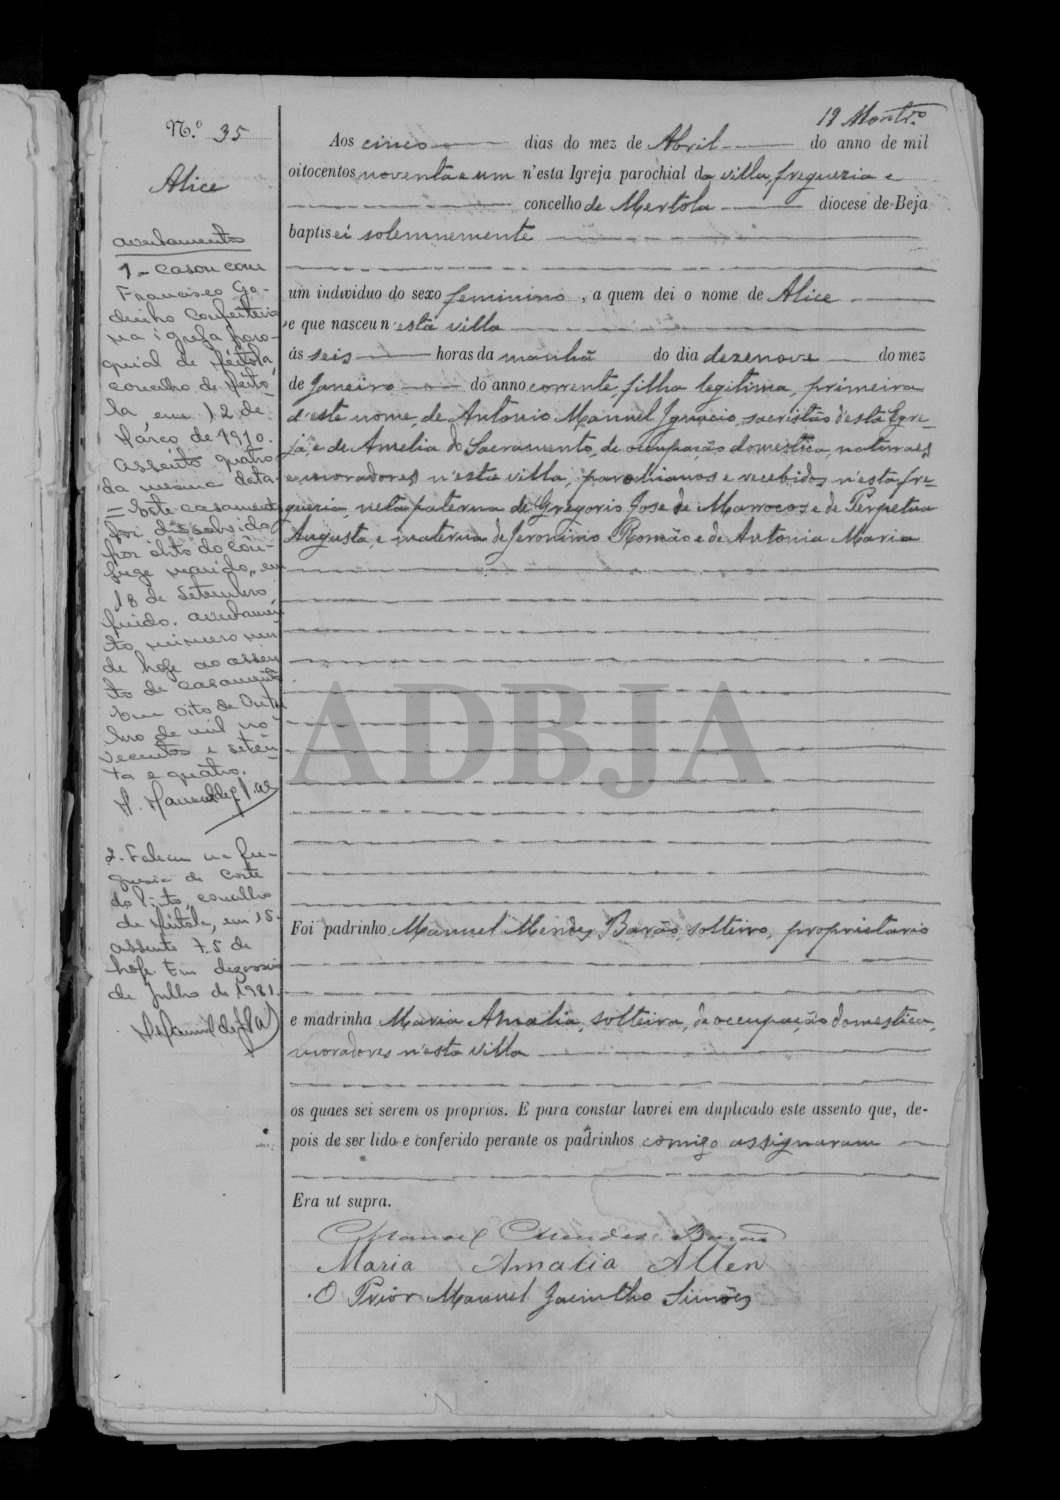 N.º 35
Alice
Averbamentos
1 - Casou com
Francisco Go-
dinho Confeiteiro
na igreja paro-
quial de Mértola
concelho de Mérto-
la, em 12 de
Março de 1910.
Assento quatro
da mesma data
= Este casamento
foi dissolvido
por óbito do côn-
juge marido, em
18 de Setembro
findo. Averbamen-
to número um
de hoje ao assen-
to de casamento
Em oito de Outu
bro de mil no-
vecentos e seten-
ta e quatro.
2. Faleceu na fre-
guesia de Corte
do Pinto, concelho
de Mértola, em 15.
Assento 75 de
hoje Em dezasseis
de Julho de 1981.
Aos cinco dias do mez de Abril do anno de mil
oitocentos noventa e um n'esta Igreja parochial da villa, freguezia e
concelho de Mertola diocese de Beja
baptisei solemnemente
um individuo do sexo feminino, a quem dei o nome de Alice
e que nasceu n'esta villa
ás seis horas da manhã do dia dezenove do mez
de Janeiro do anno corrente, filha legitima, primeira
d'este nome, de Antonio Manuel Ignacio, sacristão d'esta Egre-
ja, e de Amelia do Sacramento, de occupação domestica, naturaes,
e moradores n'esta villa, parochianos e recebidos n'esta fre-
guezia, neta paterna de Gregorio José de Marrocos e de Perpetua
Augusta, e materna de Jeronimo Romão e de Antonia Maria
ADBJA
Foi padrinho Manuel Mendes Barão, solteiro, proprietario
e madrinha Maria Amalia, solteira, de occupação domestica,
moradores n'esta villa
os quaes sei serem os proprios. E para constar lavrei em duplicado este assento que, de-
pois de ser lido e conferido perante os padrinhos comigo assignaram
Era ut supra.
Manoel Mendes Barão
Maria Amalia Allen
O Prior Manuel Jacintho Simões